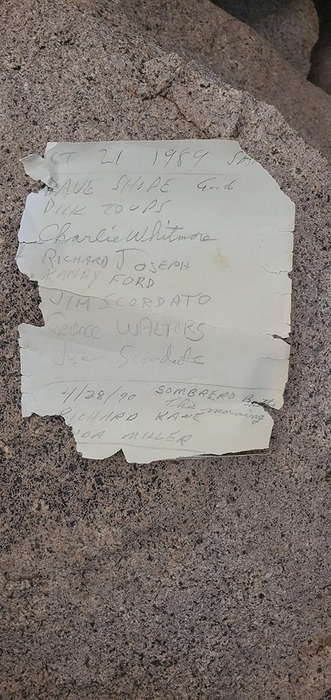 CT 21 1989 SA
DAVE SHIPE
DICK TOUPS
Charlie Whitmore
RICHARD JOSEPH
RANDY FORD
JIM SCORDATO
George WALTERS
Joe Scordato
4/28/90 SOMBRERO Both
This morning
RICHARD KANE
MILLER